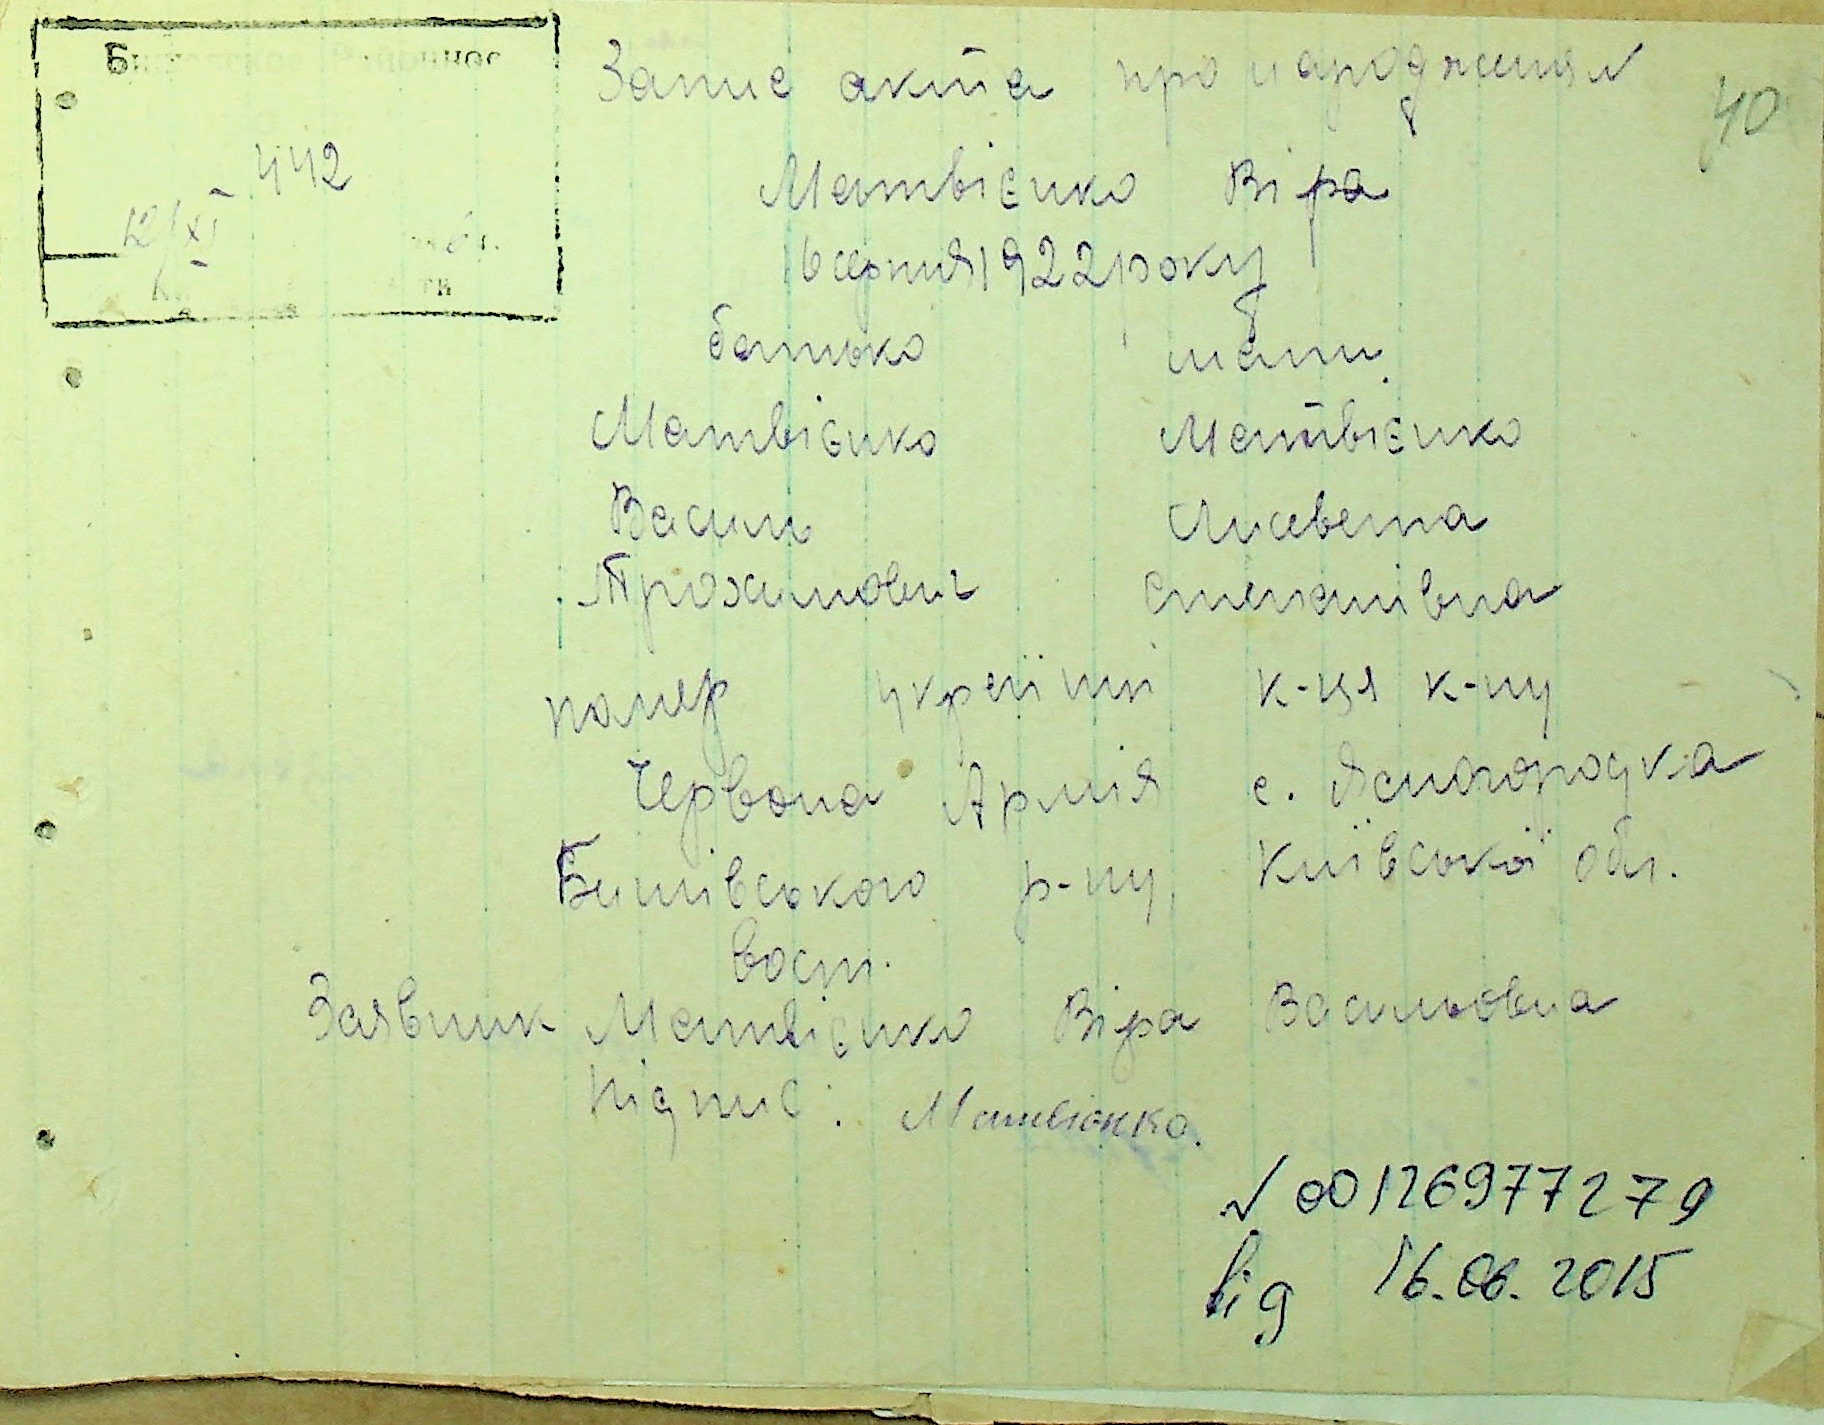 442
12/XI
Запис акта про народження
40
Матвієнко Віра
6 серпня 1922 року
батько мати
Матвієнко Матвієнко
Василь Лисевета
Трохимович Степанівна
помер українці к-ця к-пу
Червона Армія с. Ясногородка
Бишівського р-ну, Київської обл.
восп.
Заявник Матвієнко Віра Васильовна
Підпис: Матвієнко.
√ 00126977279
від 16.06.2015